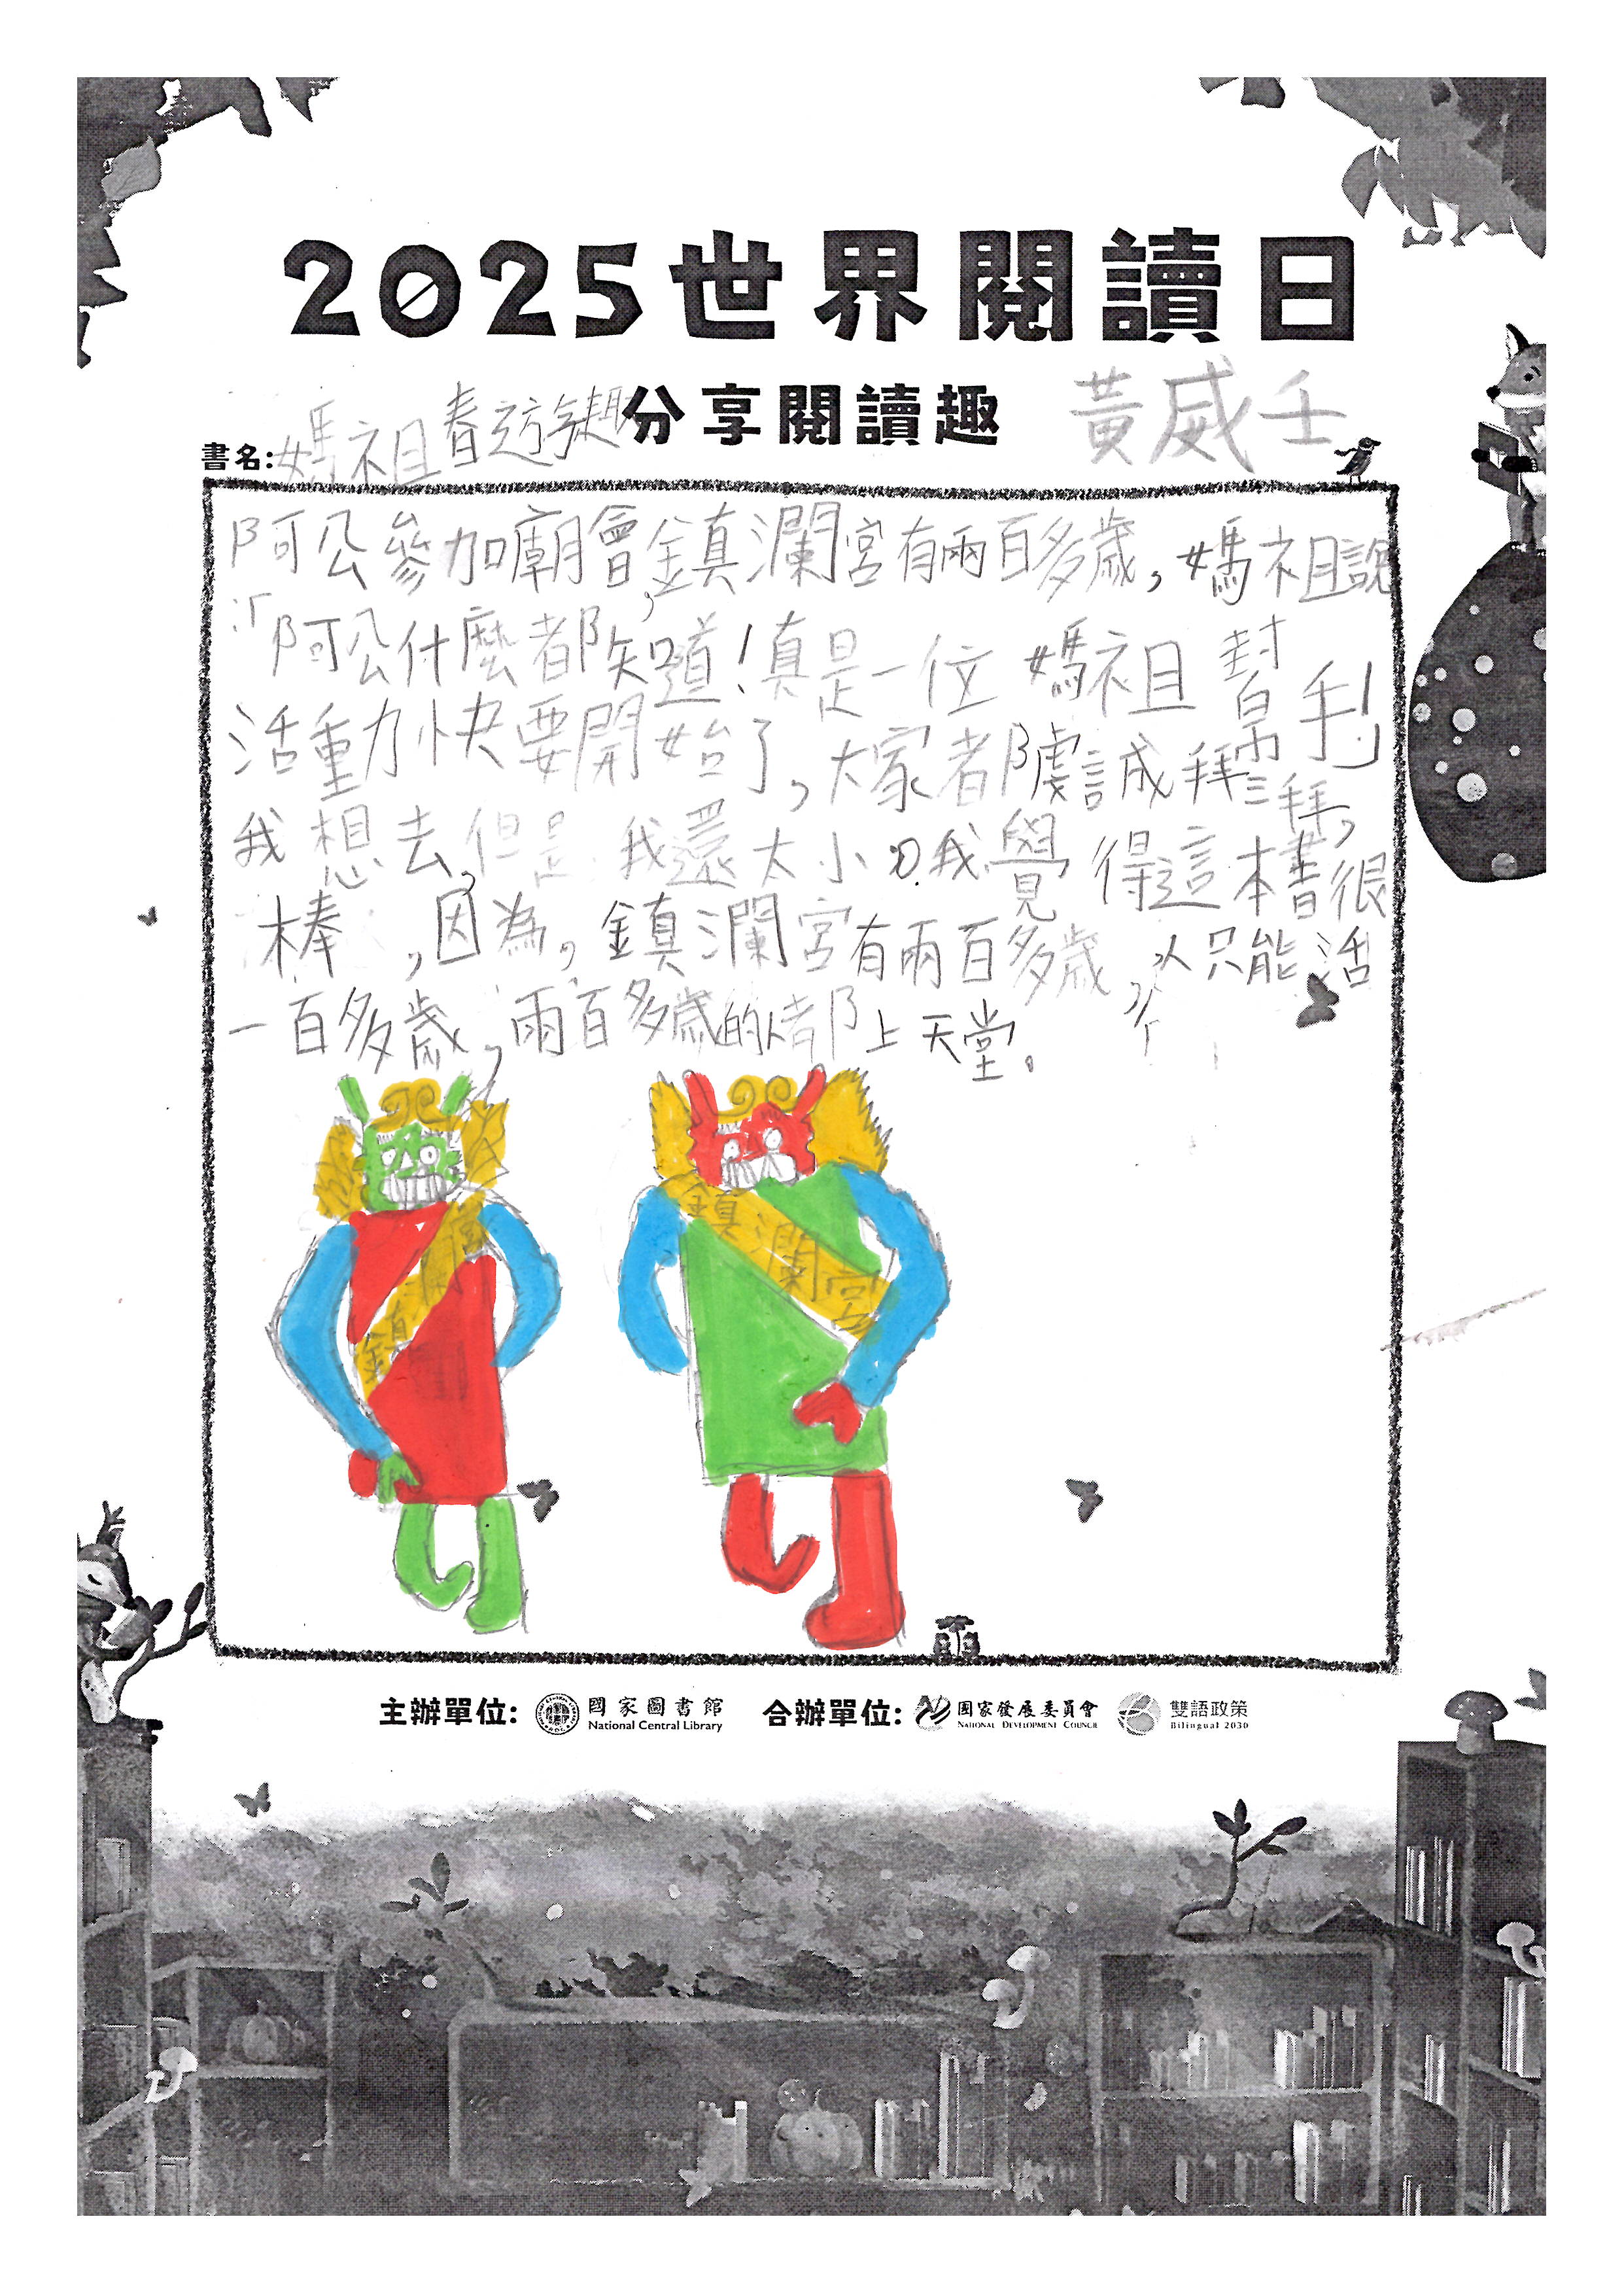 2025世界閱讀日
分享閱讀趣
黃威壬
書名:媽祖春遊
阿公參加廟會,鎮瀾宮有兩百多歲,媽祖說
:「阿公什麼都知道!真是一位媽祖幫手!」
活動快要開始了,大家都虔誠拜三拜,
我想去,但是我還太小了。我覺得這本書很
棒,因為,鎮瀾宮有兩百多歲,人只能活
一百多歲,兩百多歲的人都上天堂。
鎮瀾宮
鎮瀾宮
主辦單位: 國家圖書館 National Central Library 合辦單位: 國家發展委員會 National Development Council 雙語政策 Bilingual 2030